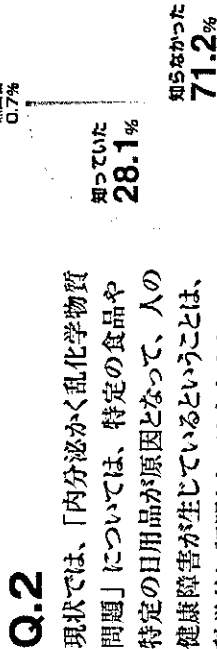 Q.2
現状では、「内分泌かく乱化学物質
問題」については、特定の食品や
特定の日用品が原因となって、人の
健康障害が生じているということは、
0.7%
知っていた
28.1%
知らなかった
71.2%